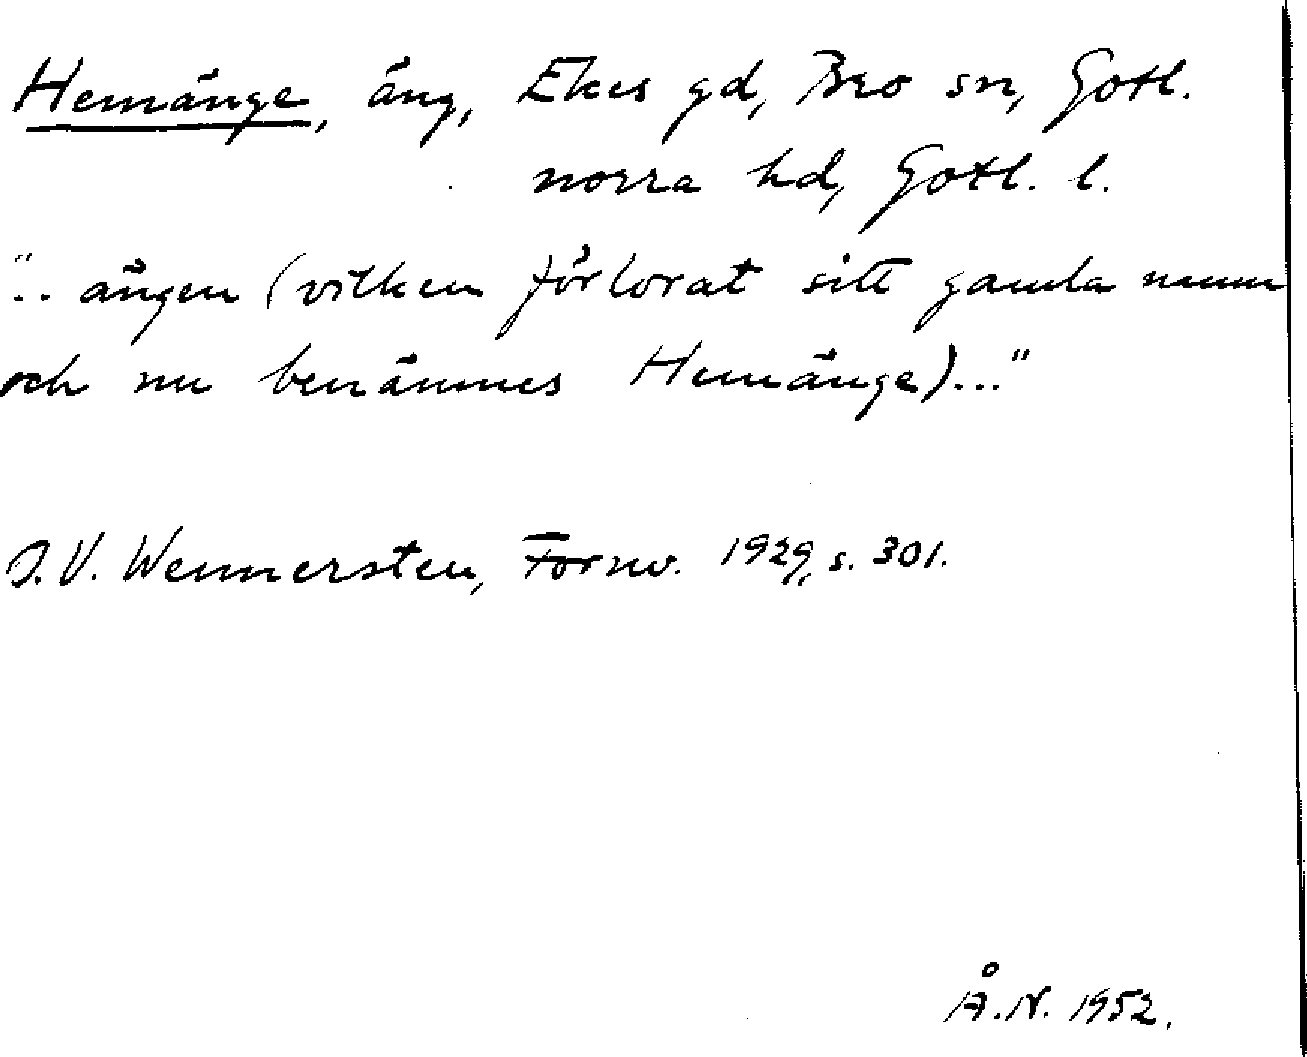 Hemänge, äng, Ekes gd, Bro sn, Gotl.
norra hd, Gotl. l.
".. ängen (vilken förlorat sitt gamla namn
och nu benämnes Hemänge)..."
O.V. Wennersten, Fornv. 1929, s. 301.
Å.N. 1952.